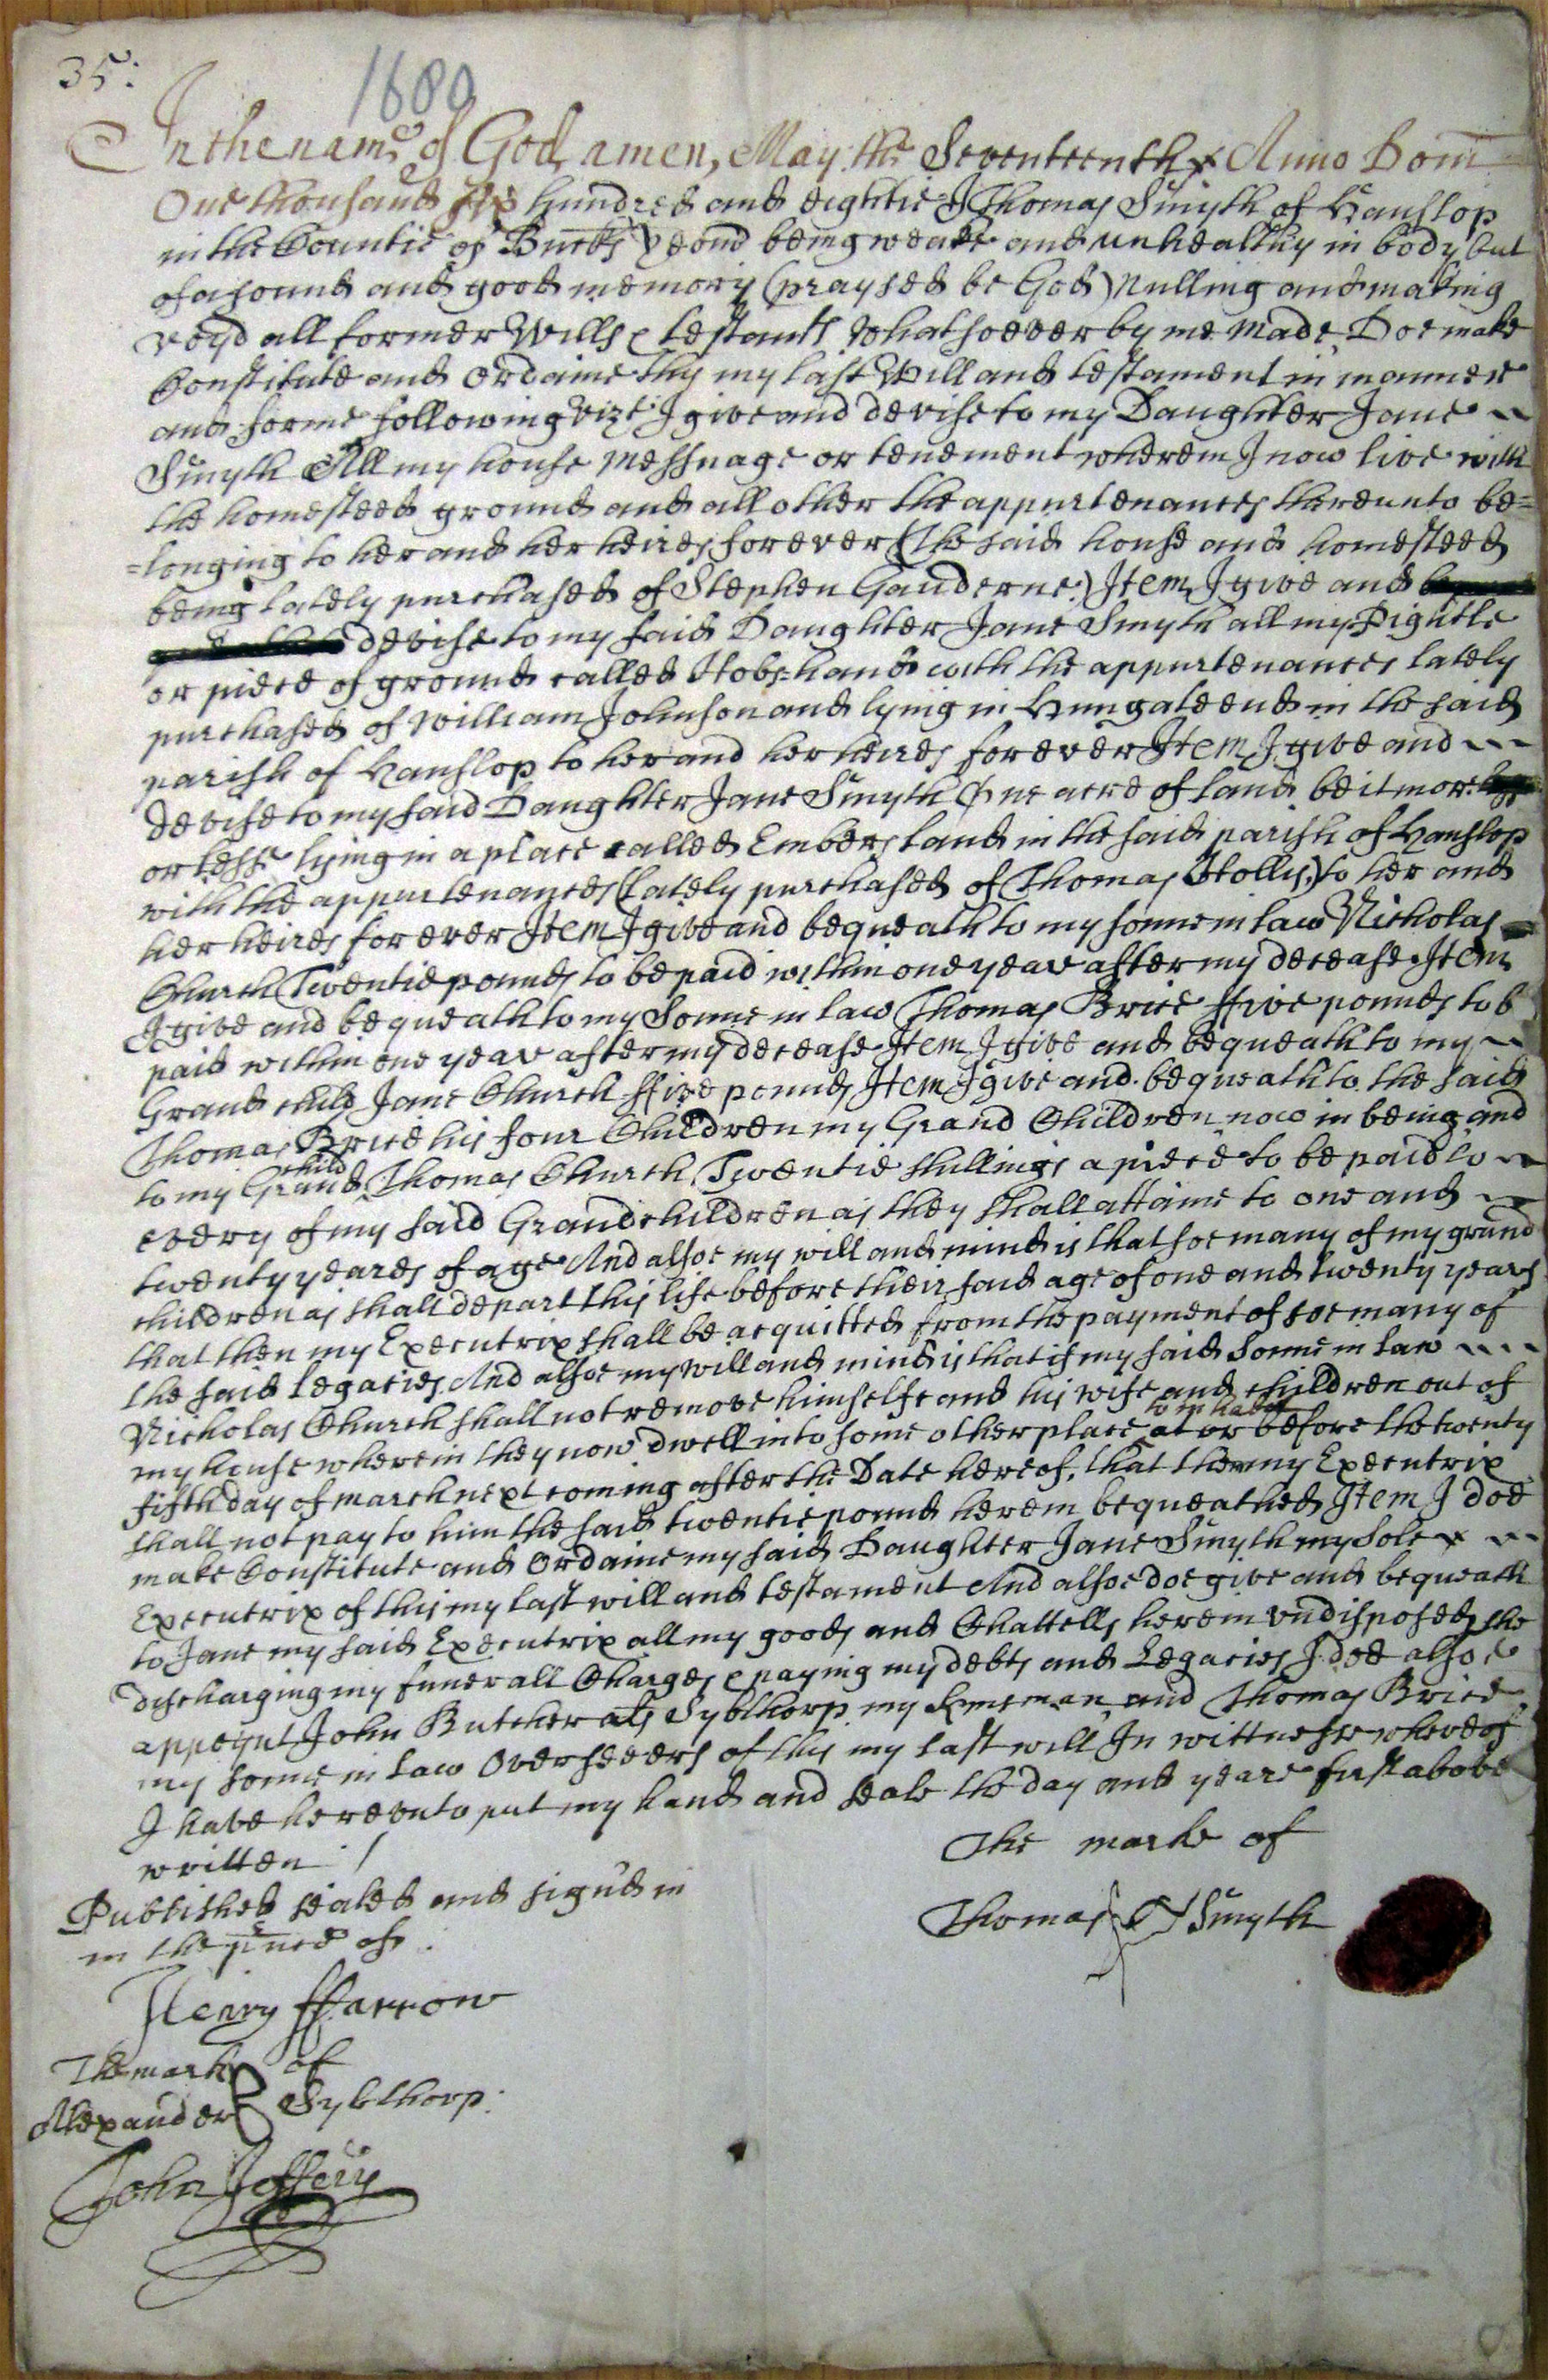 35:
1680
In the name of God, amen, May the Seventeenth Anno Dom
One thousand six hundred and eightie I Thomas Smyth of Hanslop
in the Countie of Bucks Yeom being weake and unhealthy in body but
of a sound and good memory (praysed be God) Nulling and making
voyd all former Wills & testamts whatsoever by me made, Doe make
Constitute and Ordaine this my last Will and testament in manner
and forme following vizt I give and devise to my Daughter Jane
Smyth All my house Messuage or tenement wherein I now live with
the homesteed ground and all other the appurtenances thereunto be=
=longing to her and her heires forever (The said house and homesteed
being lately purchased of Stephen Gauderne:) Item I give and
devise to my said Daughter Jane Smyth all my Pightle
or piece of ground called Hobs=hand with the appurtenances lately
purchased of William Johnson and lying in Hungateend in the said
parish of Hanslop to her and her heires forever Item I give and
devise to my said Daughter Jane Smyth One acre of land be it more
or lesse lying in a place called Embers land in the said parish of Hanslop
with the appurtenances (lately purchased of Thomas Hollis,) to her and
her heires for ever Item I give and bequeath to my sonne in law Nicholas
Church Twentie pounds to be paid within one year after my decease Item
I give and bequeath to my Sonne in law Thomas Brice ffive pounds to b
paid within one year after my decease Item I give and bequeath to my
Grand child Jane Church ffive pounds Item I give and bequeath to the said
Thomas Brice his four Children my Grand Children now in being and
to my Grand child Thomas Church Twentie shillings a piece to be paid to
every of my said Grandchildren as they shall attaine to one and
twenty yeares of age And alsoe my will and mind is that soe many of my grand
children as shall depart this life before their said age of one and twenty years
that then my Executrix shall be acquitted from the payment of soe many of
the said Legacies And alsoe my will and mind is that if my said Sonne in law
Nicholas Church shall not remove himselfe and his wife and children out of
my house wherein they now dwell into some other place to inhabit at or before the twenty
fifth day of march next coming after the Date hereof, that then my Executrix
shall not pay to him the said twentie pound herein bequeathed Item I doe
make Constitute and Ordaine my said Daughter Jane Smyth my sole
Executrix of this my last will and testament And alsoe doe give and bequeath
to Jane my said Executrix all my goods and Chattells herein undisposed, she
discharging my funerall Charges & paying my debts and Legacies I doe alsoe
appoynt John Butcher als Sybthorp my kinsman and Thomas Brice
my sonne in law Overseeers of this my last will In wittnesse whereof
I have hereunto put my hand and seale the day and yeare first above
written /
The marke of
Thomas Smyth
Published sealed and signd in
in the pnce of
Henry ffarrow
The mark of
Alexander Sybthorp
John Jeffery